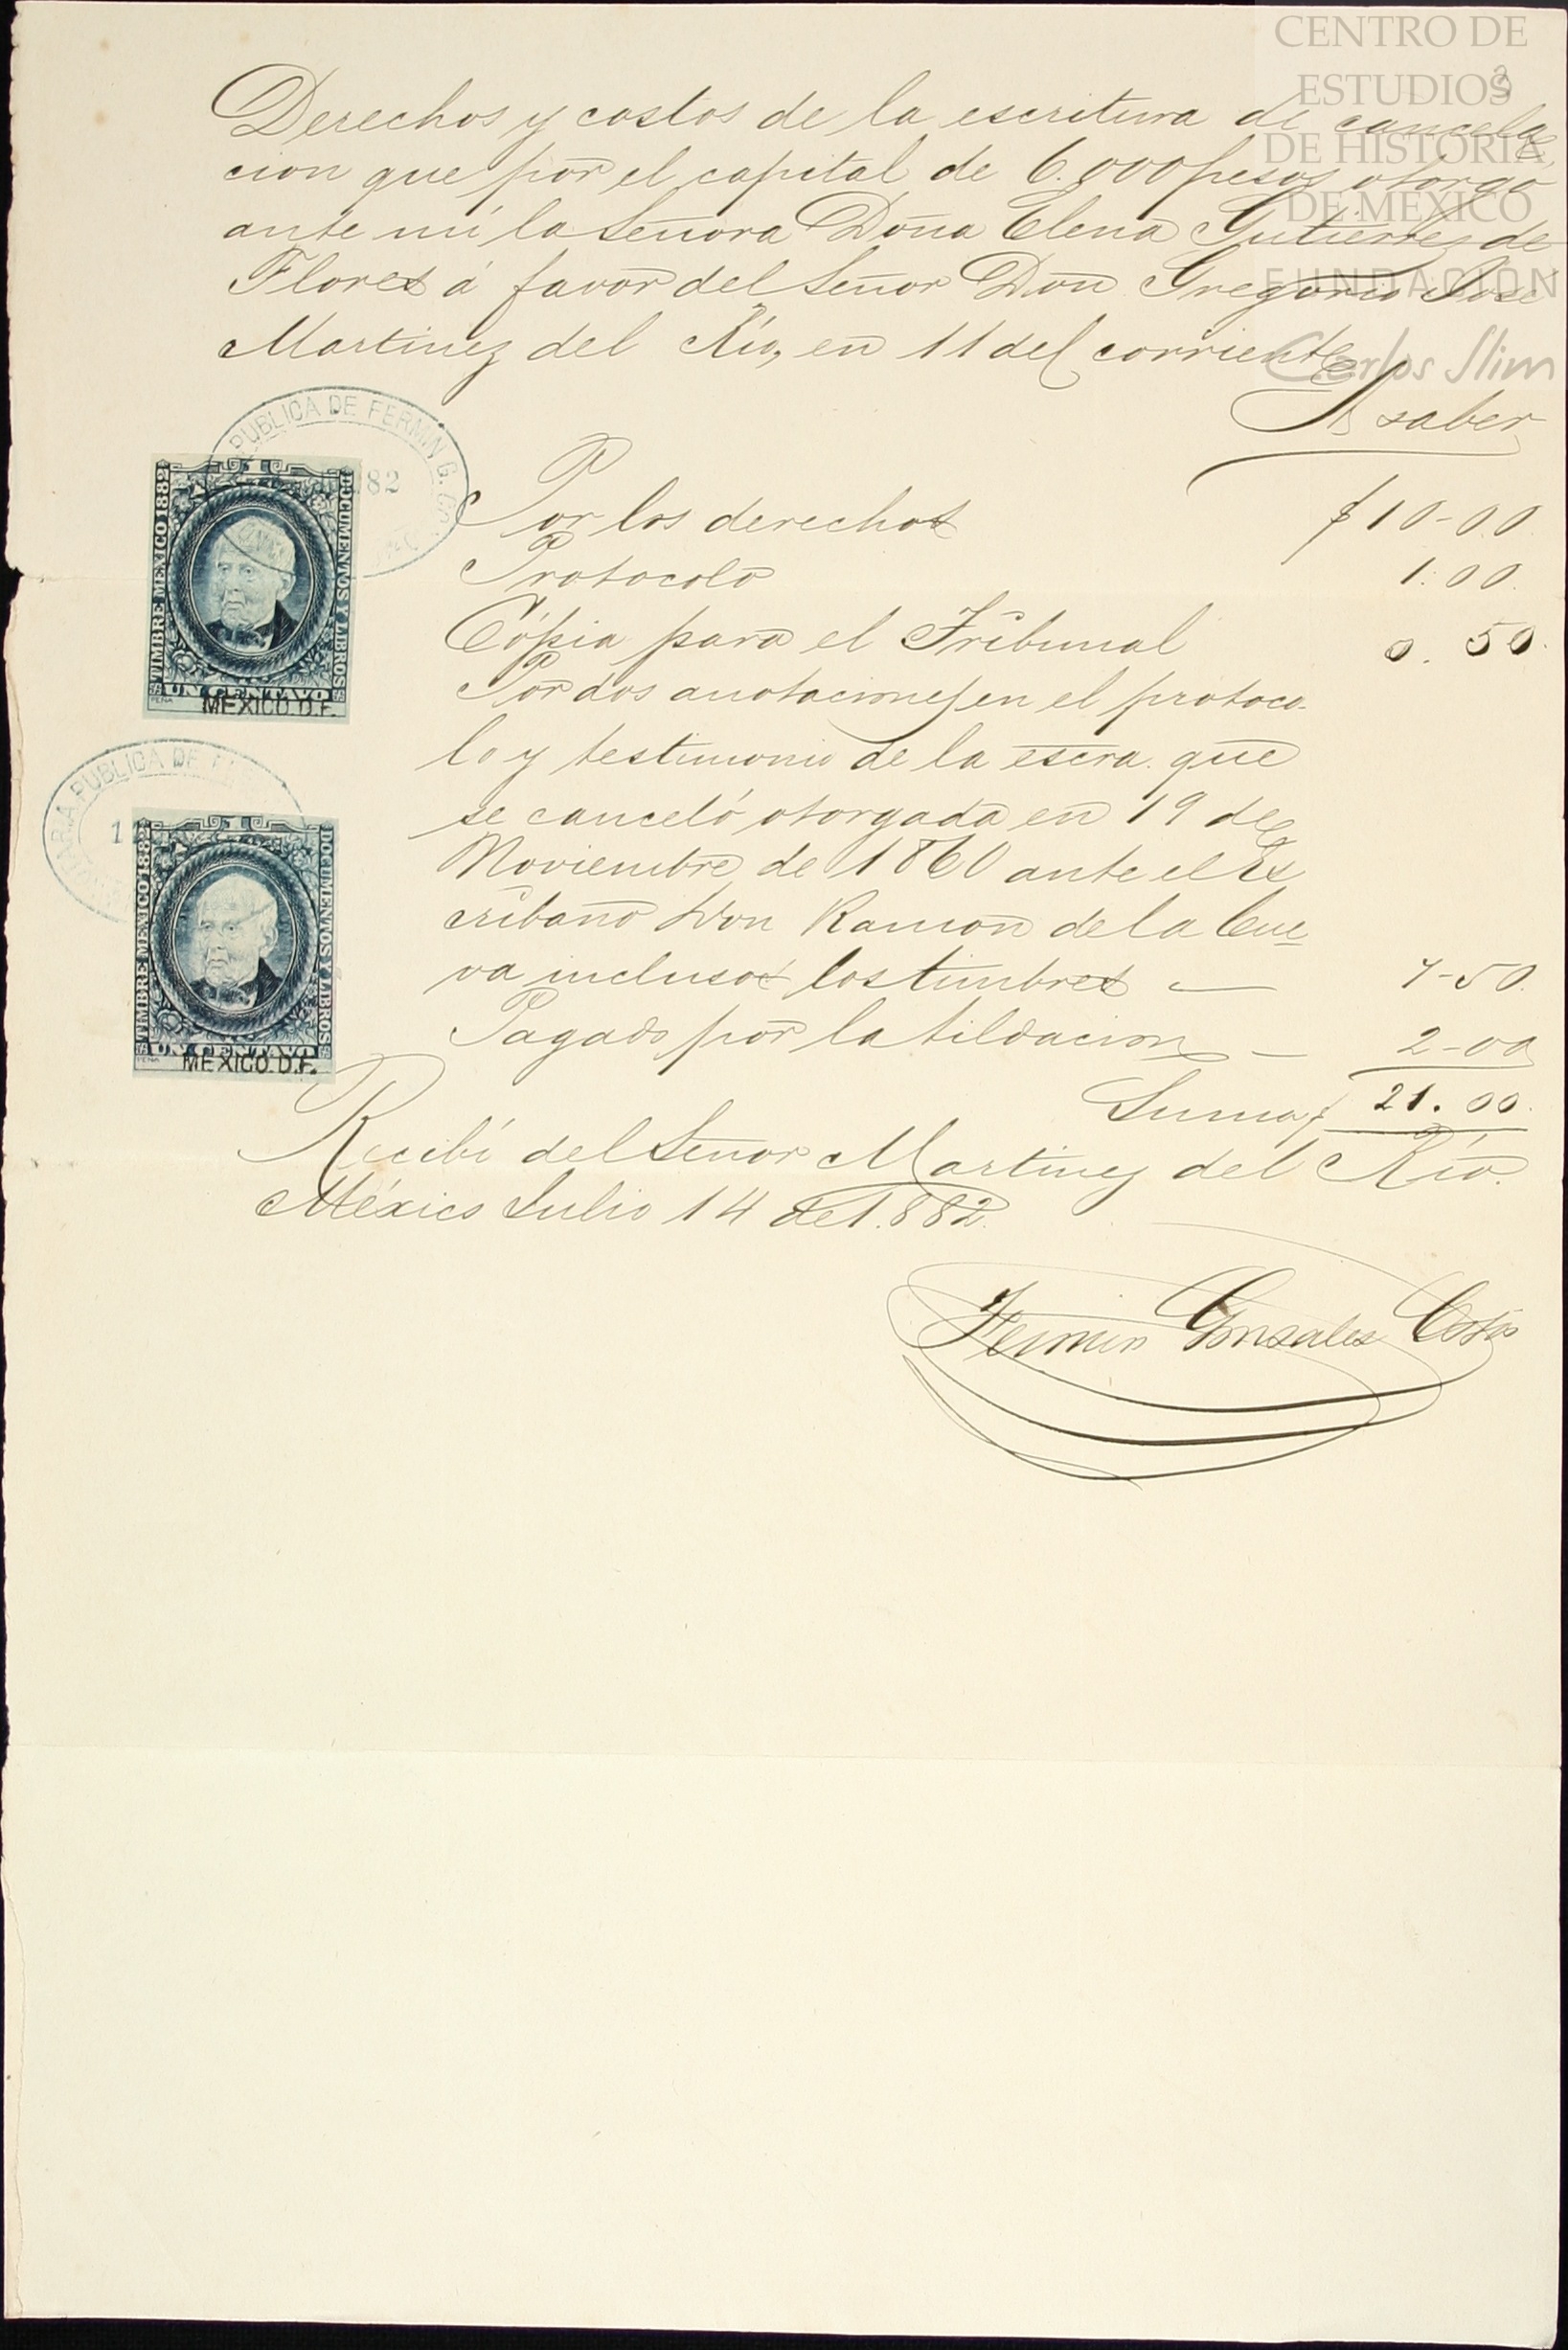 CENTRO DE
ESTUDIOS
DE HISTORIA
DE MÉXICO
FUNDACIÓN
Carlos Slim
3
Derechos y costos de la escritura de cancela
cion que por el capital de 6.000 pesos otorgó
ante mí la Señora Doña Elena Gutierrez de
Flores á favor del Señor Don Gregorio José
Martinez del Río, en 11 del corriente
A saber
Por los derechos $10-00
Protocolo 1.00.
Cópia para el Tribunal 0.50.
Por dos anotaciones en el protoco-
lo y testimonio de la escra. que
se canceló otorgada en 19 de
Noviembre de 1860 ante el Es
cribano Don Ramon de la Cue
va inclusos los timbres — 7-50.
Pagado por la tildacion — 2-00
Suma $ 21.00.
Recibí del Señor Martinez del Río.
México Julio 14 de 1.882.
Fermin Gonzales Cosío
PUBLICA DE FERMIN G.
82
TIMBRE MEXICO 1882
DOCUMENTOS Y LIBROS
UN CENTAVO
MEXICO. D.F.
PUBLICA DE
TIMBRE MEXICO 1882
DOCUMENTOS Y LIBROS
UN CENTAVO
MEXICO. D.F.